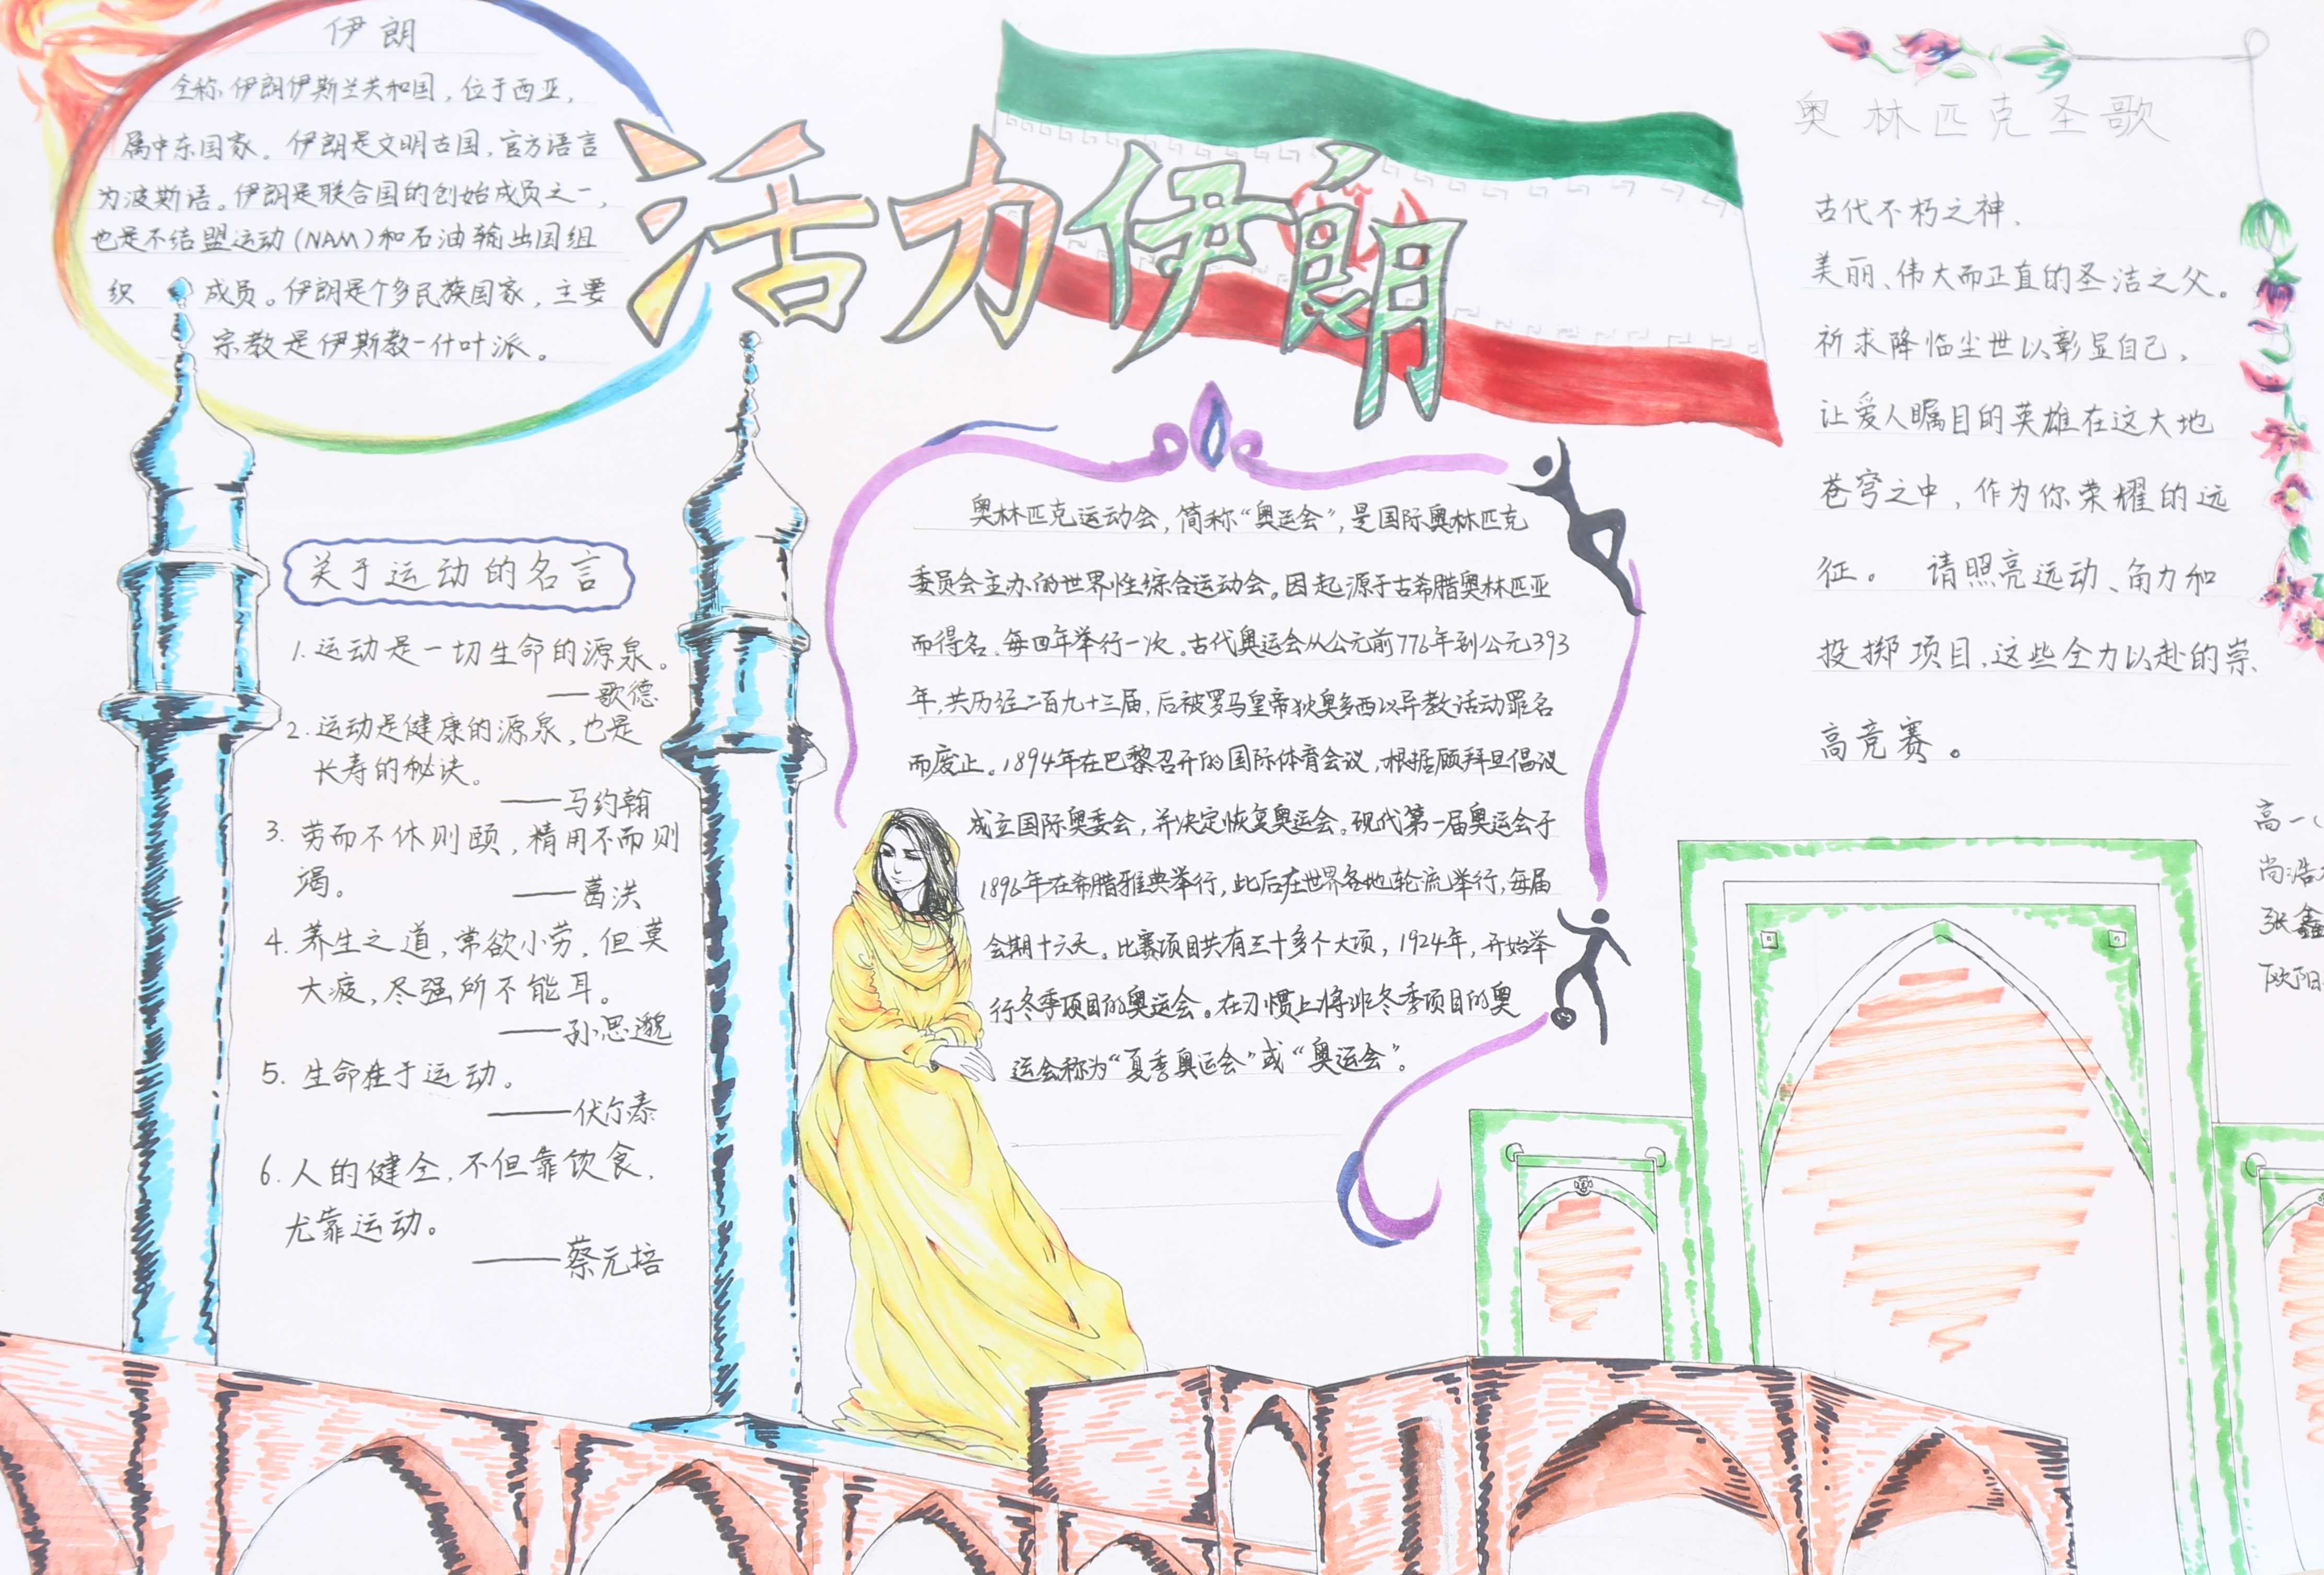 伊朗
全称伊朗伊斯兰共和国，位于西亚，
属中东国家。伊朗是文明古国，官方语言
为波斯语。伊朗是联合国的创始成员之一，
也是不结盟运动(NAM)和石油输出国组
织 成员。伊朗是个多民族国家，主要
宗教是伊斯教一什叶派。
活力伊朗
关于运动的名言
1.运动是一切生命的源泉。
——歌德
2.运动是健康的源泉，也是
长寿的秘诀。
——马约翰
3.劳而不休则颐，精用不而则
竭。
——葛洪
4.养生之道，常欲小劳，但莫
大疲，尽强所不能耳。
——孙思邈
5.生命在于运动。
——伏尔泰
6.人的健全，不但靠饮食，
尤靠运动。
——蔡元培
奥林匹克运动会，简称“奥运会”，是国际奥林匹克
委员会主办的世界性综合运动会。因起源于古希腊奥林匹亚
而得名。每四年举行一次。古代奥运会从公元前776年到公元393
年，共历经二百九十三届，后被罗马皇帝狄奥多西以异教活动罪名
而废止。1894年在巴黎召开的国际体育会议，根据顾拜旦倡议
成立国际奥委会，并决定恢复奥运会。现代第一届奥运会于
1896年在希腊雅典举行，此后在世界各地轮流举行，每届
会期十六天。比赛项目共有三十多个大项，1924年，开始举
行冬季项目的奥运会。在习惯上将非冬季项目的奥
运会称为“夏季奥运会”或“奥运会”。
奥林匹克圣歌
古代不朽之神、
美丽、伟大而正直的圣洁之父。
祈求降临尘世以彰显自己，
让爱人瞩目的英雄在这大地
苍穹之中，作为你荣耀的远
征。 请照亮运动、角力和
投掷项目，这些全力以赴的崇
高竞赛。
高一(
尚浩
张鑫
欧阳